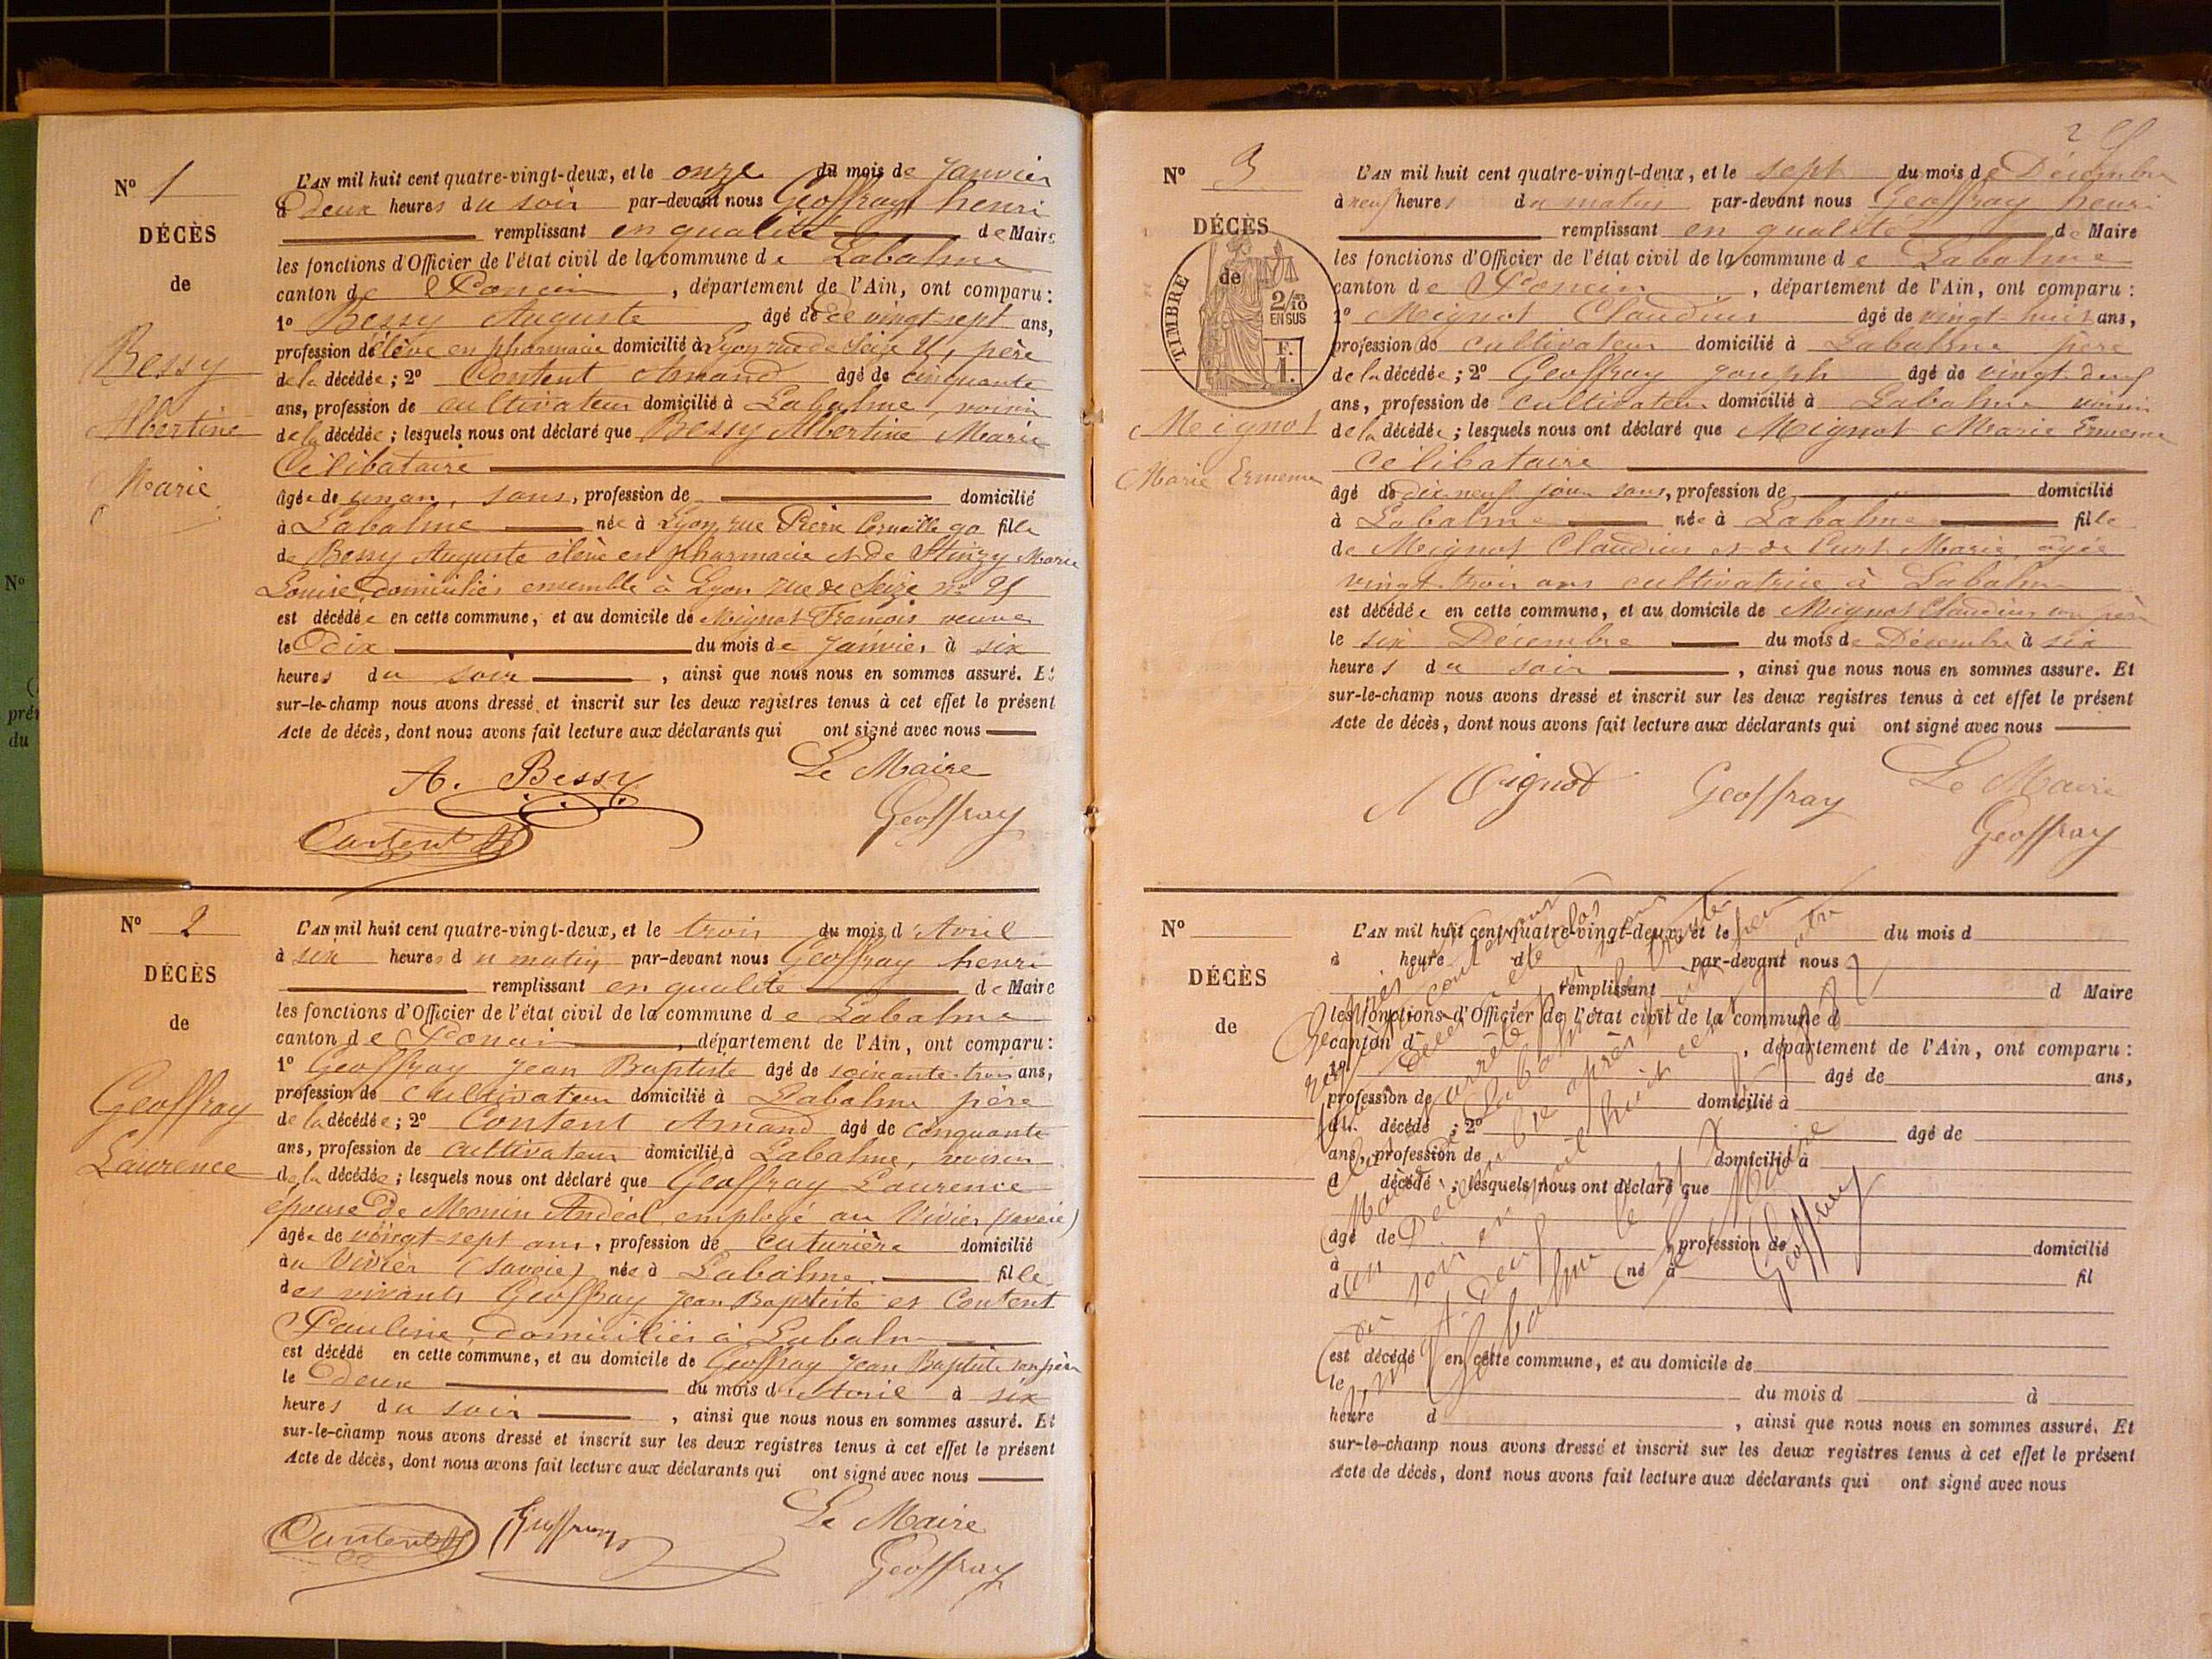 N° 1
DÉCÈS
de
Bessy
Albertine
Marie
L'AN mil huit cent quatre-vingt-deux, et le onze du mois de Janvier
à deux heures du soir par-devant nous Geoffray henri
remplissant en qualité de Maire
les fonctions d'Officier de l'état civil de la commune de Labalme
canton de Poncin, département de l'Ain, ont comparu :
1° Bessy Auguste âgé de vingt-sept ans,
profession de élève en pharmacie domicilié à Lyon rue de Seize père
de la décédée ; 2° Content Amand âgé de cinquante
ans, profession de cultivateur domicilié à Labalme, voisin
de la décédée ; lesquels nous ont déclaré que Bessy Albertine Marie
Célibataire
âgée de un an, sans, profession de domicilié
à Labalme née à Lyon rue Pierre Corneille 90 fille
de Bessy Auguste élève en pharmacie et de Marie
Louise, domiciliés ensemble à Lyon rue de Seize n°
est décédée en cette commune, et au domicile de Mignot François veuve
le dix du mois de Janvier à six
heures du soir, ainsi que nous nous en sommes assuré. Et
sur-le-champ nous avons dressé et inscrit sur les deux registres tenus à cet effet le présent
Acte de décès, dont nous avons fait lecture aux déclarants qui ont signé avec nous
A. Bessy Le Maire
Content Geoffray
N° 2
DÉCÈS
de
Geoffray
Laurence
L'AN mil huit cent quatre-vingt-deux, et le trois du mois d'Avril
à six heures du matin par-devant nous Geoffray henri
remplissant en qualité de Maire
les fonctions d'Officier de l'état civil de la commune de Labalme
canton de Poncin, département de l'Ain, ont comparu :
1° Geoffray Jean Baptiste âgé de soixante-trois ans,
profession de cultivateur domicilié à Labalme père
de la décédée ; 2° Content Amand âgé de cinquante
ans, profession de cultivateur domicilié à Labalme, voisin
de la décédée ; lesquels nous ont déclaré que Geoffray Laurence
épouse de Monin Andéol employé au Vivier (savoie)
âgée de vingt-sept ans, profession de couturière domicilié
au Vivier (savoie) née à Labalme fille
des vivants Geoffray Jean Baptiste et Content
Pauline, domiciliés à Labalme
est décédé en cette commune, et au domicile de Geoffray Jean Baptiste son père
le deux du mois d'Avril à six
heures du soir, ainsi que nous nous en sommes assuré. Et
sur-le-champ nous avons dressé et inscrit sur les deux registres tenus à cet effet le présent
Acte de décès, dont nous avons fait lecture aux déclarants qui ont signé avec nous
Content Geoffray Le Maire
Geoffray
N° 3
DÉCÈS
de
TIMBRE
2/10
EN SUS
F.
1.
Mignot
Marie
L'AN mil huit cent quatre-vingt-deux, et le sept du mois de Décembre
à neuf heures du matin par-devant nous Geoffray henri
remplissant en qualité de Maire
les fonctions d'Officier de l'état civil de la commune de Labalme
canton de Poncin, département de l'Ain, ont comparu :
1° Mignot Claudius âgé de vingt-huit ans,
profession de cultivateur domicilié à Labalme père
de la décédée ; 2° Geoffray joseph âgé de vingt-
ans, profession de cultivateur domicilié à Labalme voisin
de la décédée ; lesquels nous ont déclaré que Mignot Marie
Célibataire
âgé de dix-neuf jours sans, profession de domicilié
à Labalme née à Labalme fille
de Mignot Claudius et de Marie, âgée
vingt-trois ans cultivatrice à Labalme
est décédée en cette commune, et au domicile de Mignot Claudius son père
le six Décembre du mois de Décembre à six
heures du soir, ainsi que nous nous en sommes assuré. Et
sur-le-champ nous avons dressé et inscrit sur les deux registres tenus à cet effet le présent
Acte de décès, dont nous avons fait lecture aux déclarants qui ont signé avec nous
Mignot Geoffray Le Maire
Geoffray
N°
DÉCÈS
de
L'AN mil huit cent quatre-vingt-deux, et le du mois d
à heure d par-devant nous
remplissant d Maire
les fonctions d'Officier de l'état civil de la commune d
canton d, département de l'Ain, ont comparu :
1° âgé de ans,
profession de domicilié à
d décédé ; 2° âgé de
ans, profession de domicilié à
d décédé ; lesquels nous ont déclaré que
âgé de, profession de domicilié
à né à fil
d
est décédé en cette commune, et au domicile de
le du mois d à
heure d, ainsi que nous nous en sommes assuré. Et
sur-le-champ nous avons dressé et inscrit sur les deux registres tenus à cet effet le présent
Acte de décès, dont nous avons fait lecture aux déclarants qui ont signé avec nous
Le Maire
Geoffray